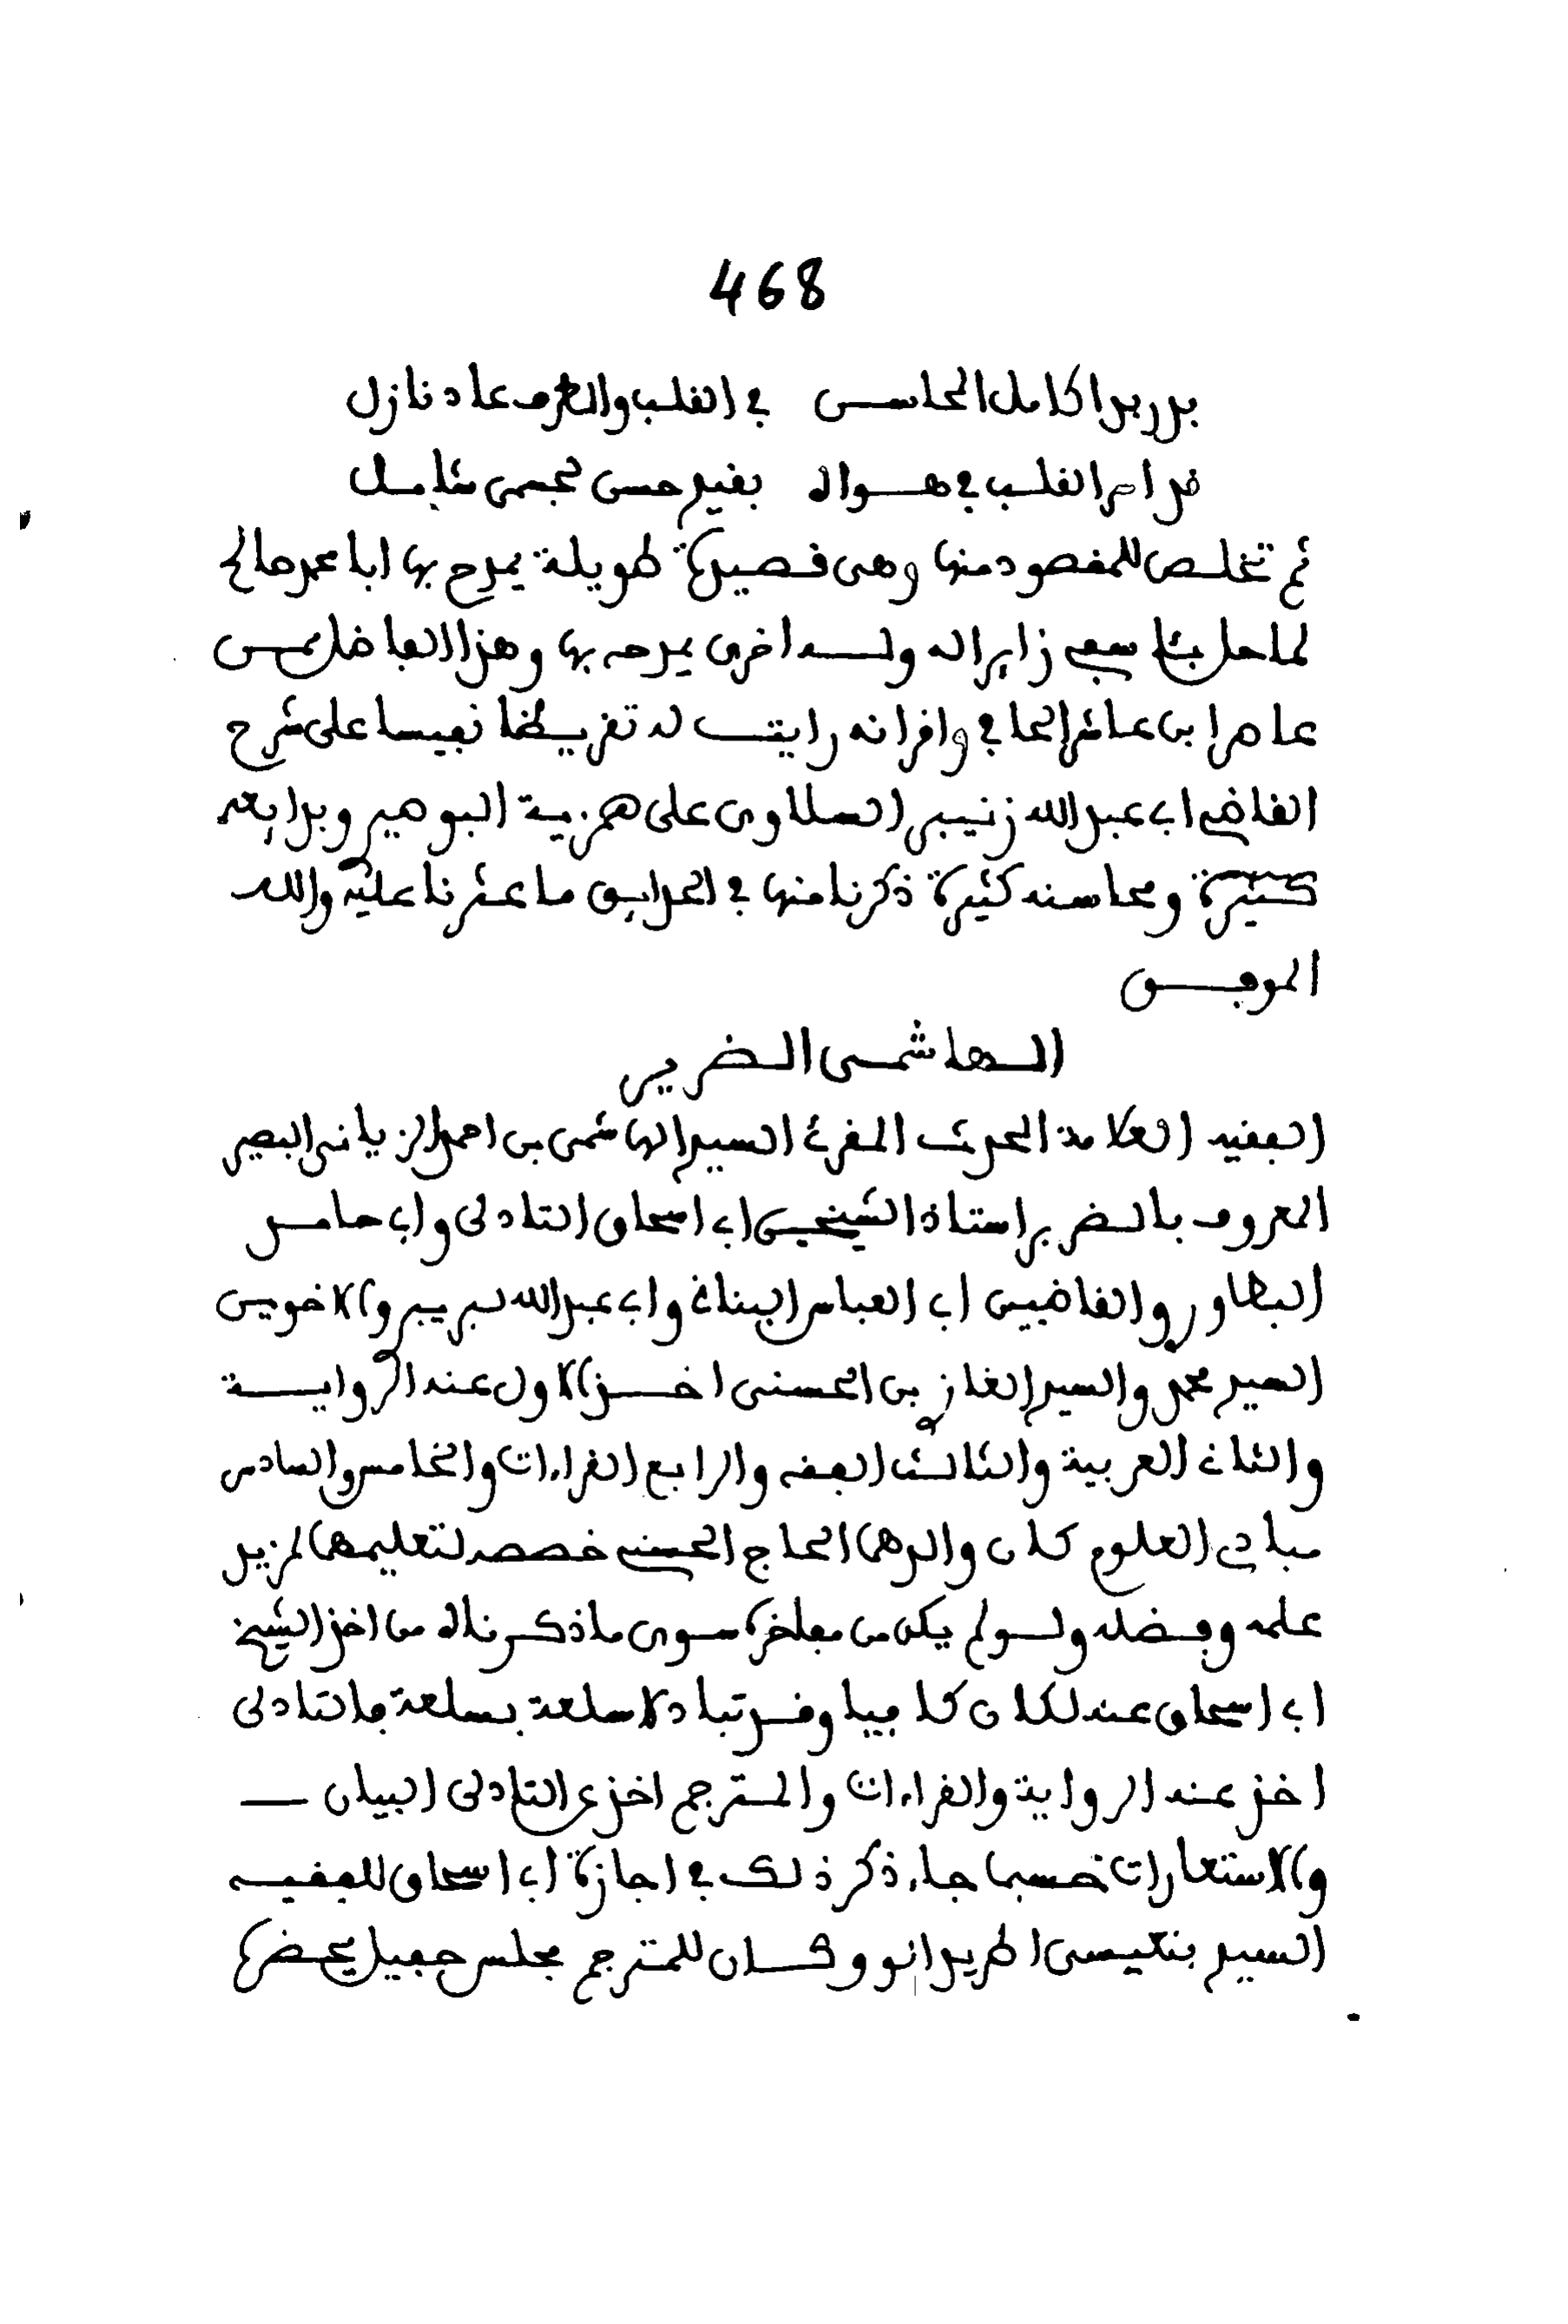 468
بدر بدا كامل المحاسن في القلب والطرف عاد نازل
قد اسر القلب في هواه بقيد حسن لجسمي شامل
ثم تخلص للمقصود منها وهي قصيدة طويلة يمدح بها ابا محمد صالح
لما حل بثغر اسفي زايرا له وله اخرى يمدحه بها وهذا الفاضل ممن
عاصر ابن عاشر الحافي واقرانه رايت له تقريظا نفيسا على شرح
القاضي ابي عبد الله زنيبر السلاوي على همزية البوصير وبدايعه
كثيرة ومحاسنه كثيرة ذكرنا منها في الحدايق ما عثرنا عليه والله
الموفق
الهاشمي الضرير
الفقيه العلامة المحدث المقرئ السيد الهاشمي بن احمد الزياني البصير
المعروف بالضرير استاذ الشيخين ابي اسحاق التادلي وابي حامد
البطاور والقاضيين ابي العباس البناني وابي عبد الله لبريبر والاخوين
السيد محمد والسيد الغازي بن الحسني اخذ الاول عنه الرواية
والثاني العربية والثالث الفقه والرابع القراءات والخامس والسادس
مبادي العلوم كان والدهما الحاج الحسني خصصه لتعليمهما لمزيد
علمه وفضله ولو لم يكن من مفاخره سوى ما ذكرناه من اخذ الشيخ
ابي اسحاق عنه لكان كافيا وقد تبادلا سلعة بسلعة فالتادلي
اخذ عنه الرواية والقراءات والمترجم اخذ عن التادلي البيان
والاستعارات حسبما جاء ذكر ذلك في اجازة ابي اسحاق للفقيه
السيد بنعيسى المريدانو وكان للمترجم مجلس حفيل يحضره